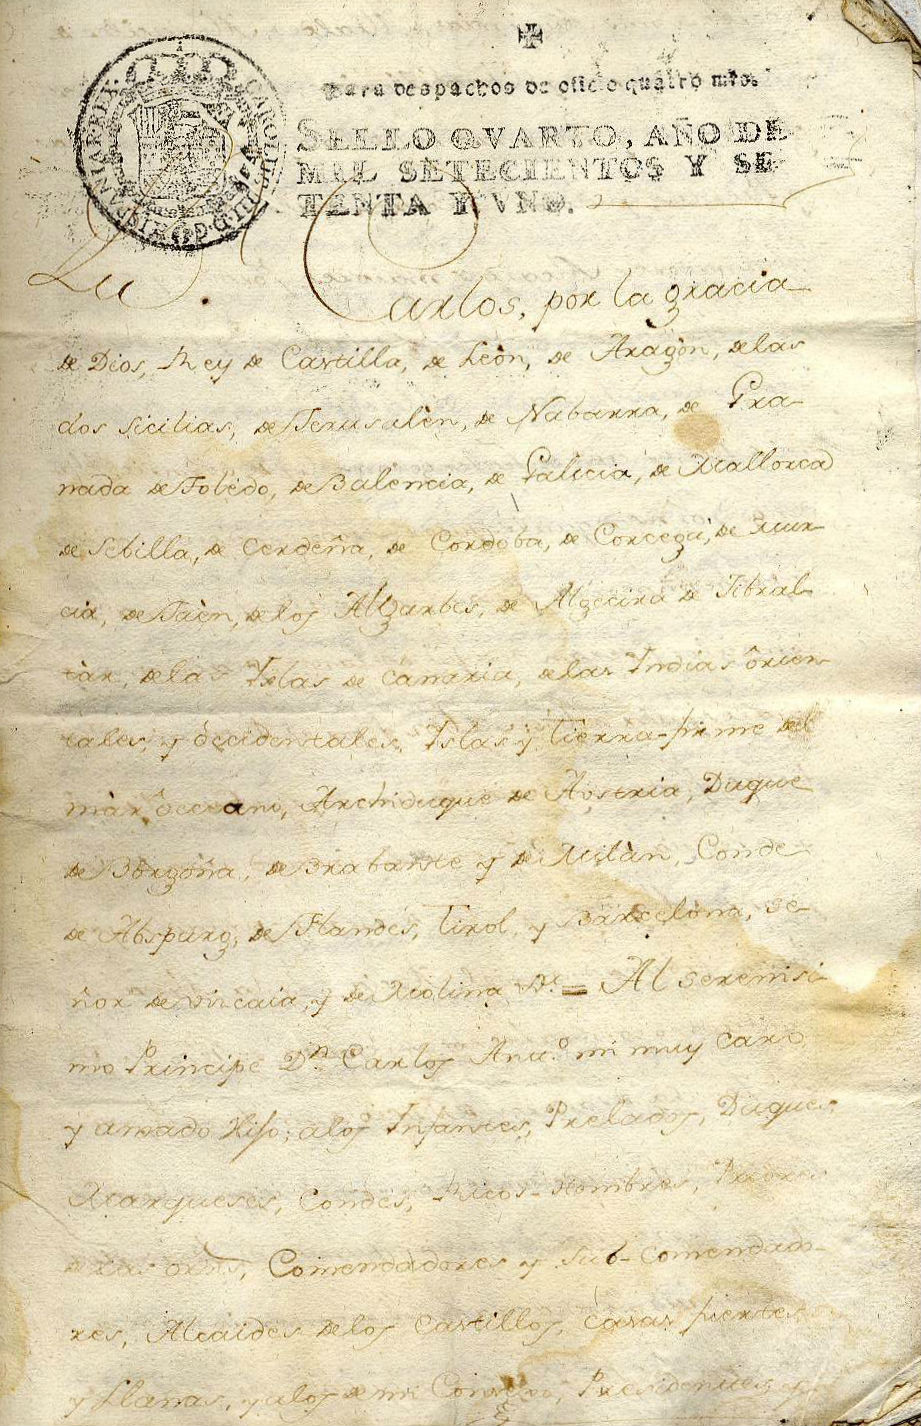 ✠
Para despachos de oficio quatro mrs.
SELLO QVARTO, AÑO DE
MIL SETECIENTOS Y SE-
TENTA Y VNO.
CAROLUS III D. G. HISPANIAR. REX
Carlos, por la gracia
de Dios, Rey de Castilla, de Leòn, de Aragòn, delas
dos Sicilias, de Jerusalèn, de Nabarra, de Gra-
nada de Toledo, de Balencia, de Galicia, de Mallorca
de Sebilla, de Cerdeña, de Cordoba, de Corcega, de Mur-
cia, de Jaèn, de los Algarbes, de Algecira de Jibral-
tàr, delas Yslas de Canaria, delas Yndias ôrien-
tales, y òccidentales, Yslas y Tierra-firme del
màr ôcceano, Archiduque de Aostria, Duque
de Borgoña, de Brabante y de Milàn, Conde
de Abspurg, de Flandes, Tirol, y Barcelona, Se-
ñor de vizcaia, y de Molina &c. = Al serenisi-
mo Principe Dn. Carlos Antº. mi muy caro
y amado Hijo; alos Infantes, Prelados, Duques
Marqueses, Condes, Ricos-Hombres, Priores
delas ords, Comendadores y sub-comendado-
res, Alcaides delos Castillos, casas fuertes
y Llanas, y alos de mi Consejo, Presidentes y